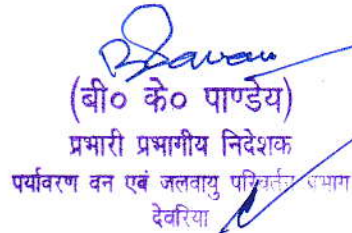 (बी० के० पाण्डेय)
प्रभारी प्रभागीय निदेशक
पर्यावरण वन एवं जलवायु परिवर्तन विभाग
देवरिया